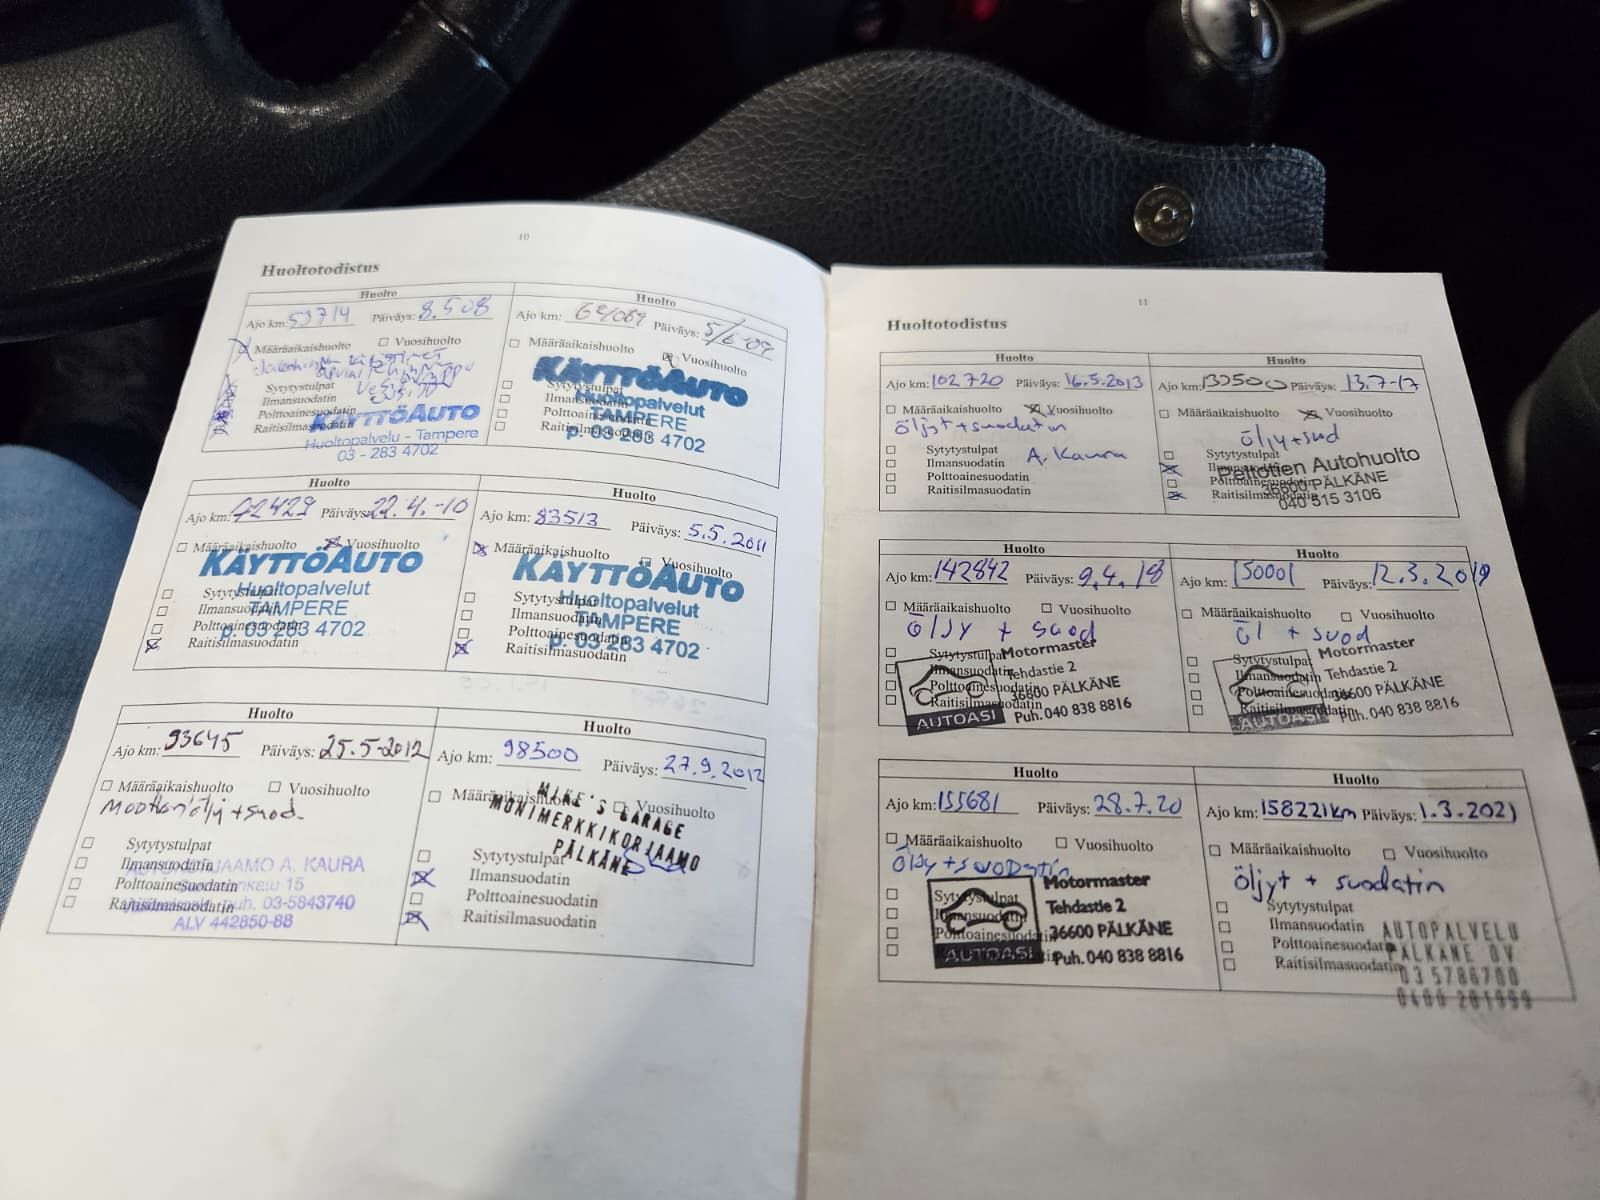 10
Huoltotodistus
Huolto
Ajo km: 53714 Päiväys: 8.5.08
Määräaikaishuolto Vuosihuolto
Sytytystulpat
Ilmansuodatin
Polttoainesuodatin
Raitisilmasuodatin
KÄYTTÖAUTO
Huoltopalvelu - Tampere
03 - 283 4702
Huolto
Ajo km: Päiväys: 5/6-09
Määräaikaishuolto Vuosihuolto
KÄYTTÖAUTO
Sytytystulpat
Huoltopalvelut
Ilmansuodatin
TAMPERE
Polttoainesuodatin
p. 03 283 4702
Raitisilmasuodatin
Huolto
Ajo km: 72429 Päiväys: 22.4.-10
Määräaikaishuolto Vuosihuolto
KÄYTTÖAUTO
Huoltopalvelut
Sytytystulpat
TAMPERE
Ilmansuodatin
Polttoainesuodatin
p. 03 283 4702
Raitisilmasuodatin
Huolto
Ajo km: 83513 Päiväys: 5.5.2011
Määräaikaishuolto Vuosihuolto
KÄYTTÖAUTO
Sytytystulpat
Huoltopalvelut
Ilmansuodatin
TAMPERE
Polttoainesuodatin
p. 03 283 4702
Raitisilmasuodatin
Huolto
Ajo km: 93645 Päiväys: 25.5-2012
Määräaikaishuolto Vuosihuolto
Moottoriöljy + suod.
Sytytystulpat
Ilmansuodatin
A. KAURA
Polttoainesuodatin
15
Raitisilmasuodatin
puh. 03-5843740
ALV 442850-88
Huolto
Ajo km: 98500 Päiväys: 27.9.2012
Määräaikaishuolto Vuosihuolto
MIKE'S GARAGE
MONIMERKKIKORJAAMO
PÄLKÄNE
Sytytystulpat
Ilmansuodatin
Polttoainesuodatin
Raitisilmasuodatin
11
Huoltotodistus
Huolto
Ajo km: 102720 Päiväys: 16.5.2013
Määräaikaishuolto Vuosihuolto
Öljyt + suodatin
Sytytystulpat
A. Kaura
Ilmansuodatin
Polttoainesuodatin
Raitisilmasuodatin
Huolto
Ajo km: 133500 Päiväys: 13.7-17
Määräaikaishuolto Vuosihuolto
Öljy + suod
Sytytystulpat
Ilmansuodatin
Peltotien Autohuolto
Polttoainesuodatin
36600 PÄLKÄNE
Raitisilmasuodatin
040 515 3106
Huolto
Ajo km: 142842 Päiväys: 9.4.18
Määräaikaishuolto Vuosihuolto
Öljy + suod
Sytytystulpat
Motormaster
Ilmansuodatin
Tehdastie 2
Polttoainesuodatin
36600 PÄLKÄNE
Raitisilmasuodatin
AUTOASI
Puh. 040 838 8816
Huolto
Ajo km: 150001 Päiväys: 12.3.2019
Määräaikaishuolto Vuosihuolto
Öl + suod
Sytytystulpat
Motormaster
Ilmansuodatin
Tehdastie 2
Polttoainesuodatin
36600 PÄLKÄNE
Raitisilmasuodatin
AUTOASI
Puh. 040 838 8816
Huolto
Ajo km: 155681 Päiväys: 28.7.20
Määräaikaishuolto Vuosihuolto
Öljy + suodatin
Motormaster
Sytytystulpat
Tehdastie 2
Ilmansuodatin
36600 PÄLKÄNE
Polttoainesuodatin
AUTOASI
Puh. 040 838 8816
Huolto
Ajo km: 158221km Päiväys: 1.3.2021
Määräaikaishuolto Vuosihuolto
Öljyt + suodatin
Sytytystulpat
Ilmansuodatin
AUTOPALVELU
Polttoainesuodatin
PÄLKÄNE OY
Raitisilmasuodatin
03 5786700
0400 201999